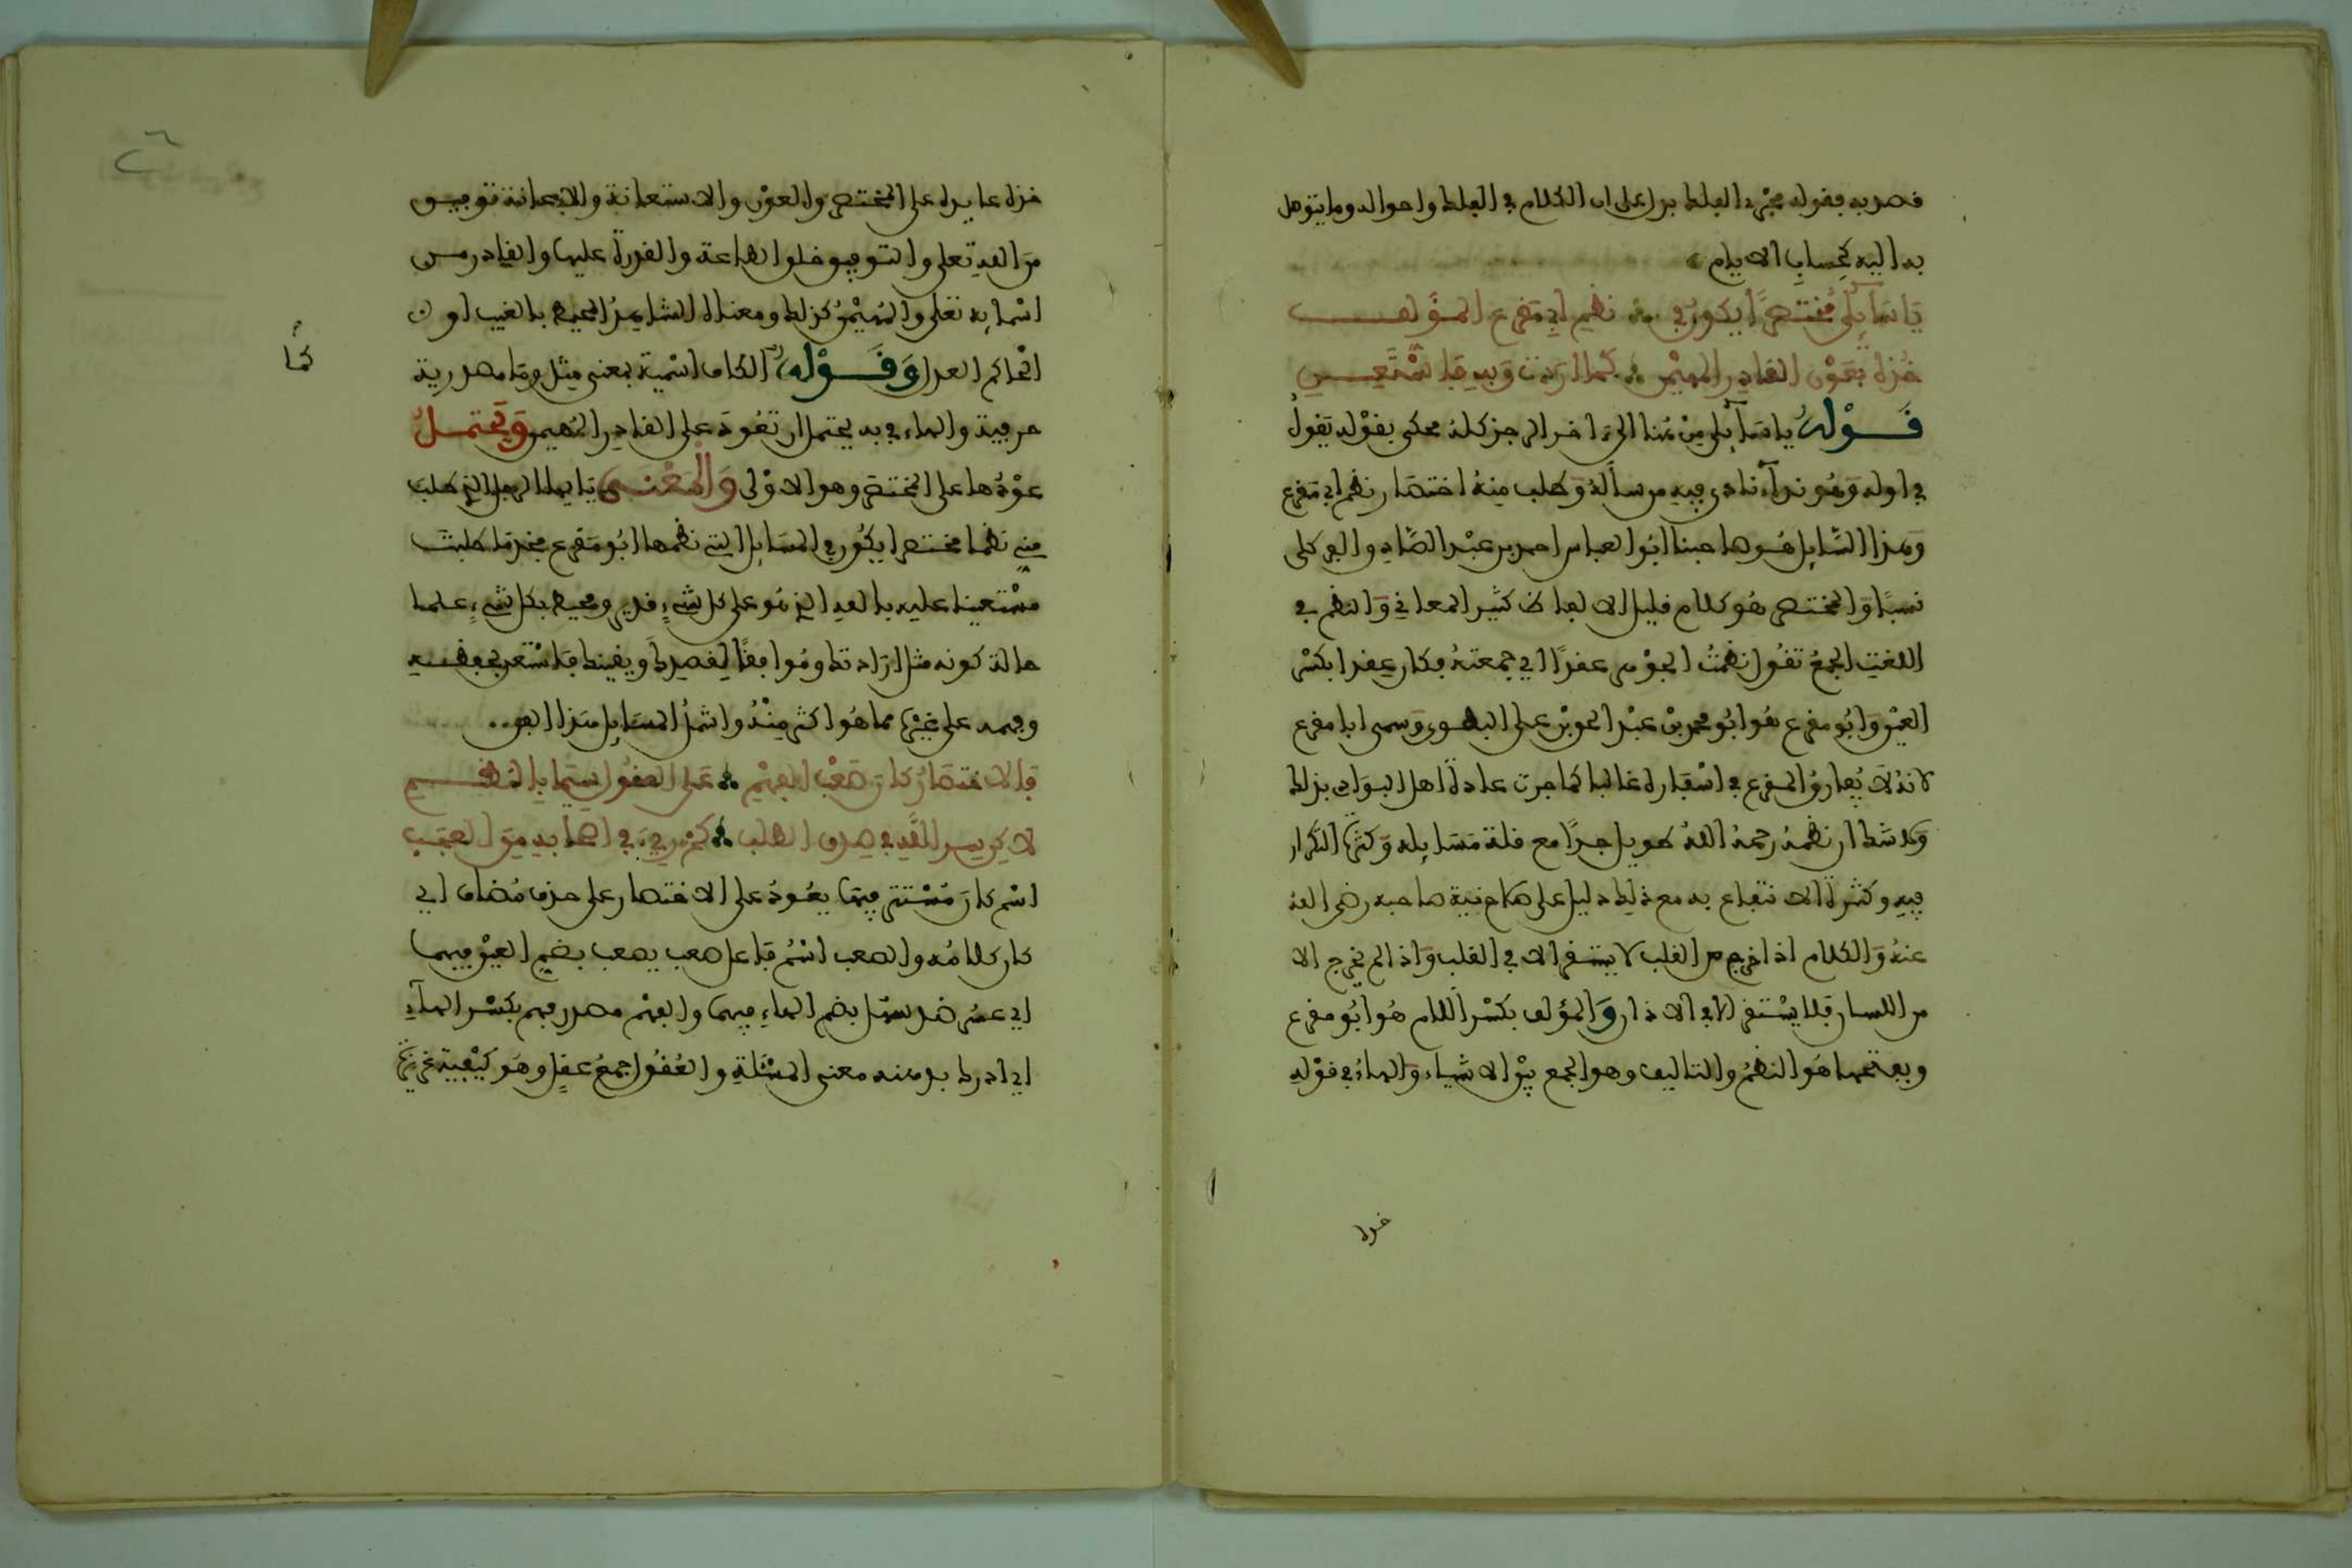 قصد به فقوله مجرد الفلك يدل على ان الكلام في الفلك واحواله وما يتوصل
به اليه كحساب الايام
يَا سَآئِلِي مُخْتَصَرًا يكون في نظم ابي مقرع المؤلف
خُذْهُ بِعَوْنِ القادر المهيمن كما اردت وبه فاستعن
قَوْلُهُ يا سَآئلي مِنْ هُنا الى آخر الرجز كله محكي بقوله يَقُولُ
في اوله وَهُو ندآء نادى فيه من سأله وَطلب مِنهُ اختصار نظم ابي مقرع
وَهذا السَّائل هُو صاحبنا ابُو العباس احمد بن عبْد الصَّادق
نسبًا وَالمختصر هُو كلام قليل الالفاظ كثير المعاني وَالنظم في
اللغةِ الجمعُ تقُول نظمْتُ الجوْهر عقدًا اي جمعتهُ فكان عِقدا بكسْر
العيْن وَابُو مقرع هُو ابُو محمد بْن عبْد الحق بْن علي البطوي وَسمي ابا مقرع
لانهُ لا يُفارقُ المقرع في اسْفاره غالبا كما جرت عادة اهل البَوَادي بذلك
وَلا شك ان نظمهُ رحمهُ اللهُ طويل جدًا مع قلة مَسَائله وَكثرة التكرار
فيهِ وكثرة الانتفاع به مع ذلِك دليل على صلاح نية صاحبه رضي الله
عنهُ وَالكلام اذا خرج من القلب لا يستقر الا في القلب وَاذا لم يخرج الا
من اللسان فلا يسْتقر الا في الاذان وَالمؤلف بكسْر اللام هُو ابُو مقرع
وفعلهما هُو النظمُ والتاليف وهو الجمع بيْن الاشياء وَالهاءُ في قوْلهِ
خذه
خذه عايده على المختصر والعوْن والاستعانة والاعانة توفيق
مِنَ اللهِ تعلى والتوفيق خلق الطاعة والقدرة عليها والقادر من
اسْمائه تعلى والمُهَيْمن كذلك ومعناه الشاهدُ المحيط بالغيب او
الحاكم العدل وَقَوْلُهُ الكاف اسْمية بمعنى مِثل وما مصدرية
كمَا
حرفية والهاء في به يحتمل ان تعُودَ على القادر المُهيمن وَيَحْتَمِلُ
عوْدُها على المختصر وهو الاوْلى وَالمَعْنَى يَا ايها الرجل الذي طلب
مِني نظما مختصرا يكُون في المسَائل التي نظمها ابُو مَقرع فخذ مَا طلبت
مسْتعينا عليه بالله الذي هُو على كل شيءٍ قدير ومحيط بكل شيءٍ علما
حالة كونه مثل ارَادتك ومُوافقًا لِقصدِك وَيقينك فاسْتعن بحفظهِ
وفهمه على غيْره مما هُو اكثر مِنْهُ واشملُ لمسَايل هَذا الفن
فالاختصارُ كان صَعْبَ الفهْمِ على العقُول سيّما بالنظم
لاكن يسر الله في صِدق الطلب
اسْم كان مُسْتتر فيهَا يعُودُ على الاختصار على حذف مُضاف اي
كان كلامُه والصعب اسْمُ فاعل صعب يصعب بضم العيْن فيهما
اي عسُر ضد سهُل بضم الهاءِ فيهما والفهْم مصدر فهم بكسْر الهآءِ
اي ادرك بذهنه معنى المسْئلة والعُقُول جمعُ عقلٍ وهُو كيْفية غريزية